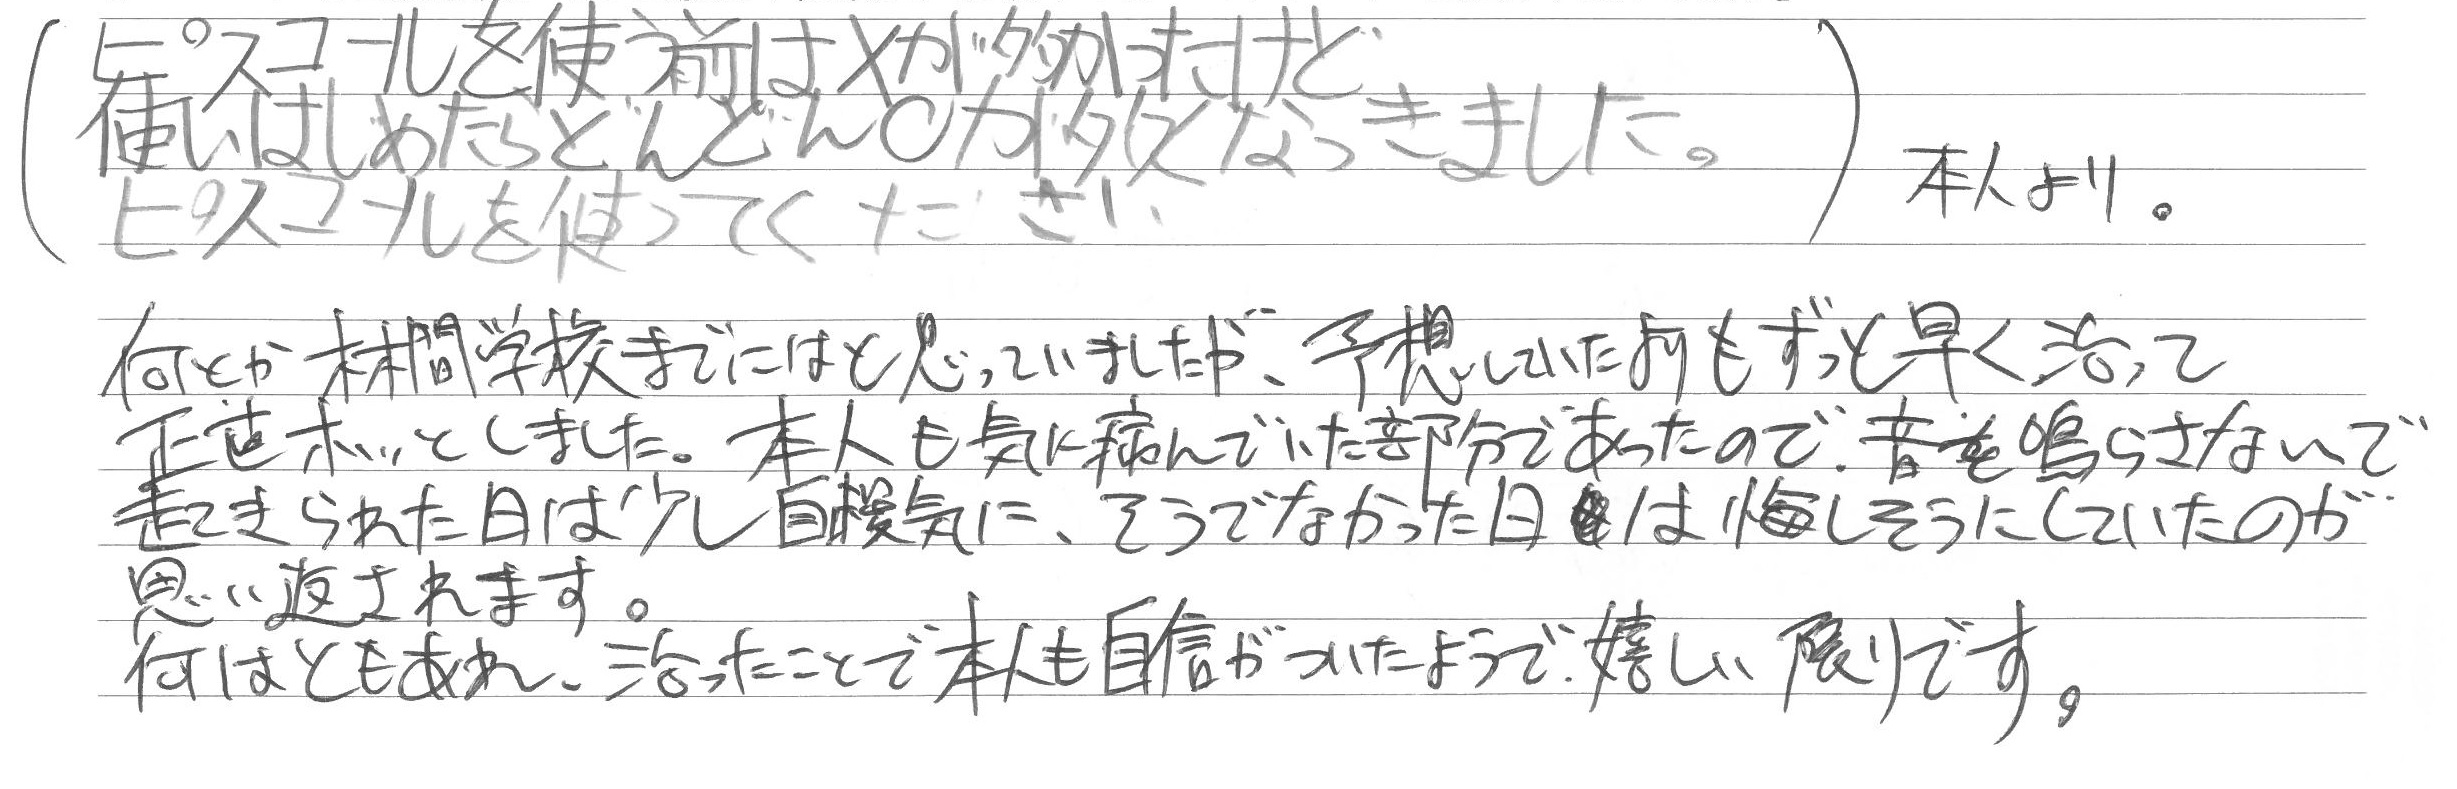 (ピスコールを使う前は×が多かったけど
使いはじめたらどんどん○が多くなっきました。
ピスコールを使ってください) 本人より。
何とか林間学校までにはと思っていましたが、予想していたよりもずっと早く治って
正直ホッとしました。本人も気に病んでいた部分であったので、音を鳴らさないで
起てきられた日は少し自慢気に、そうでなかった日は悔しそうにしていたのが
思い返されます。
何はともあれ、治ったことで本人も自信がついたようで、嬉しい限りです。